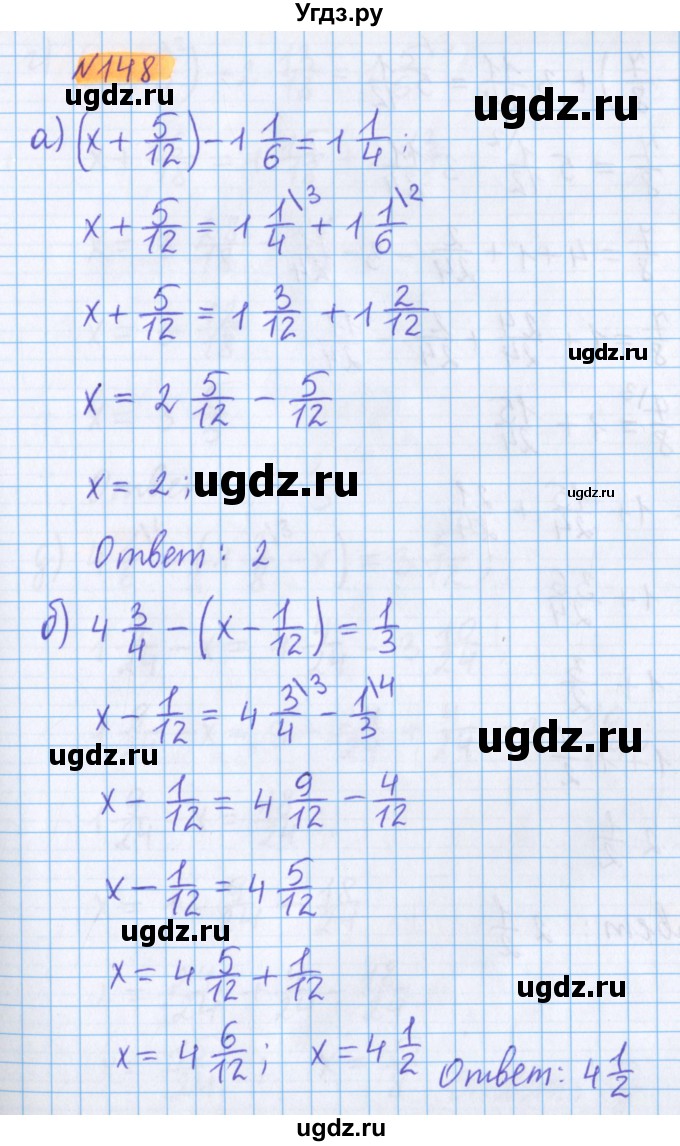 Угдз.ру
№148
ugdz.ru ugdz.ru
а) (x + 5/12) - 1 1/6 = 1 1/4;
x + 5/12 = 1 1/4\3 + 1 1/6\2
x + 5/12 = 1 3/12 + 1 2/12
ugdz.ru
x = 2 5/12 - 5/12
x = 2; ugdz.ru ugdz.ru
Ответ: 2
б) 4 3/4 - (x - 1/12) = 1/3
x - 1/12 = 4 3/4\3 - 1/3\4
ugdz.ru ugdz.ru
x - 1/12 = 4 9/12 - 4/12
x - 1/12 = 4 5/12
ugdz.ru
x = 4 5/12 + 1/12
ugdz.ru
x = 4 6/12; x = 4 1/2 Ответ: 4 1/2
ugdz.ru